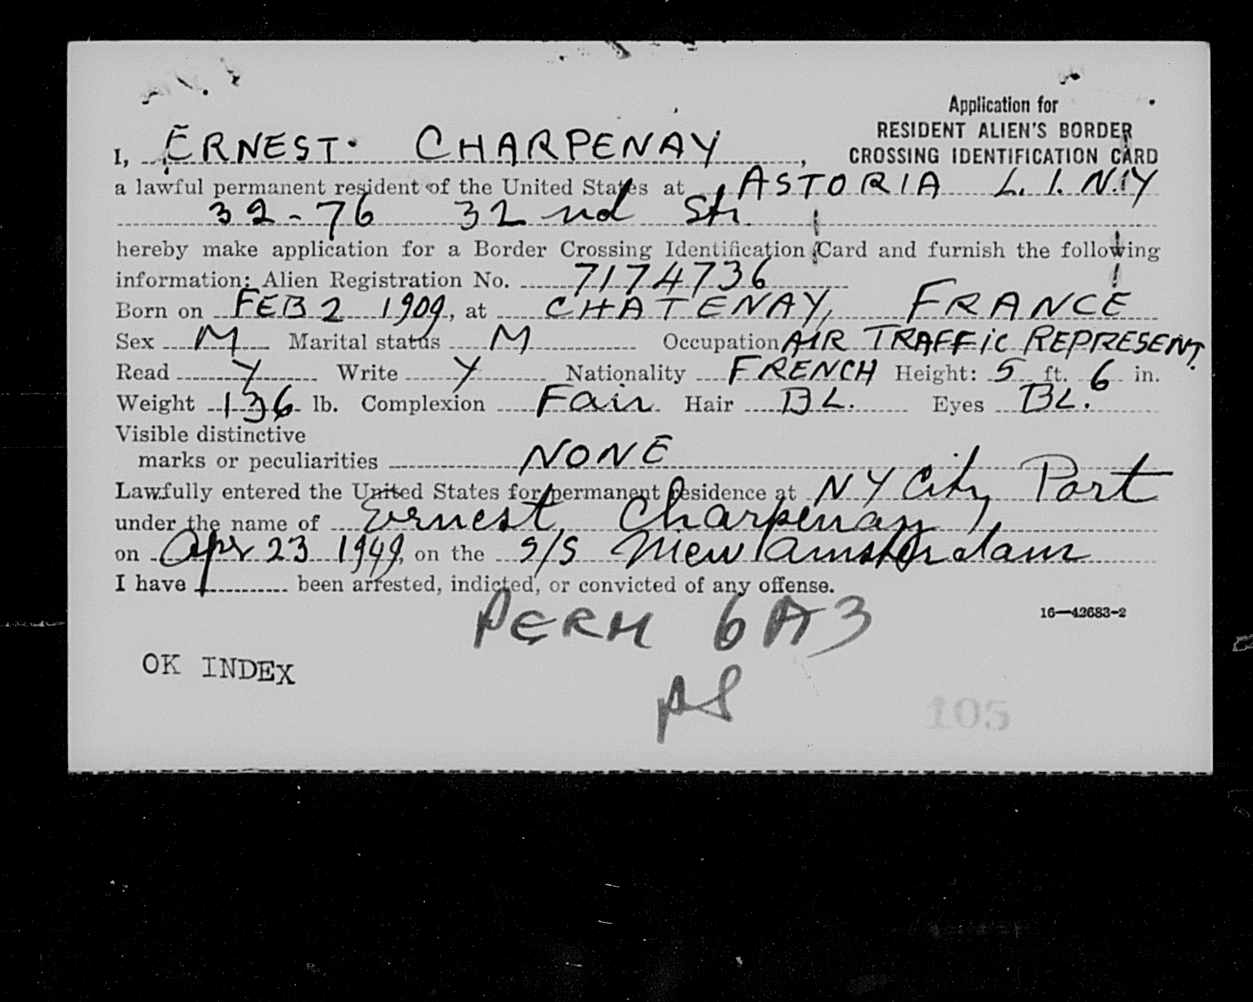 Application for
RESIDENT ALIEN'S BORDER
CROSSING IDENTIFICATION CARD
I, ERNEST. CHARPENAY,
a lawful permanent resident of the United States at ASTORIA L. I. N.Y
32-76 32 nd Str.
hereby make application for a Border Crossing Identification Card and furnish the following
information: Alien Registration No. 7174736
Born on FEB 2 1909, at CHATENAY, FRANCE
Sex M Marital status M Occupation AIR TRAFFIC REPRESENT.
Read Y Write Y Nationality FRENCH Height: 5 ft. 6 in.
Weight 136 lb. Complexion Fair Hair BL. Eyes BL.
Visible distinctive
marks or peculiarities NONE
Lawfully entered the United States for permanent residence at NY City Port
under the name of Ernest Charpenay
on Apr 23 1949, on the S/S Niew Amsterdam
I have been arrested, indicted, or convicted of any offense.
16—42683-2
PERM 6A3
OK INDEX
105